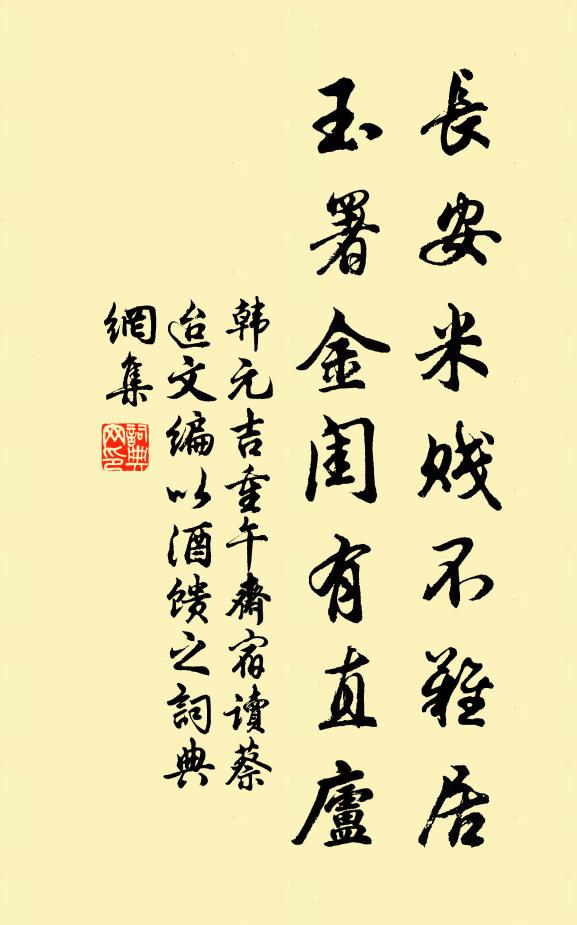 長安米賤不難居
玉署金閨有直廬
韩元吉重午齋宿讀蔡
迨文編以酒饋之詞典
網集
詞典
网印